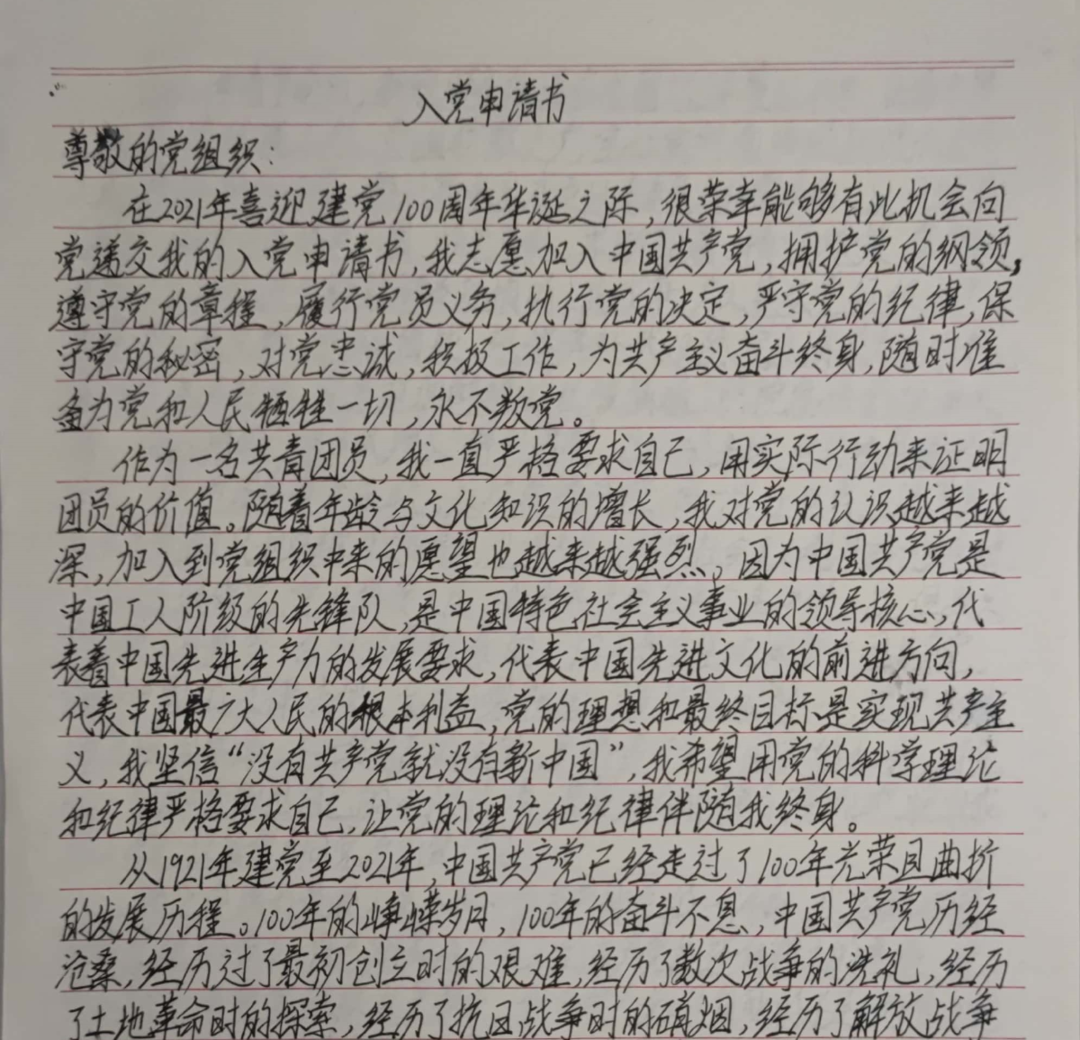 入党申请书
尊敬的党组织：
在2021年喜迎建党100周年华诞之际，很荣幸能够有此机会向
党递交我的入党申请书，我志愿加入中国共产党，拥护党的纲领，
遵守党的章程，履行党员义务，执行党的决定，严守党的纪律，保
守党的秘密，对党忠诚，积极工作，为共产主义奋斗终身，随时准
备为党和人民牺牲一切，永不叛党。
作为一名共青团员，我一直严格要求自己，用实际行动来证明
团员的价值。随着年龄与文化知识的增长，我对党的认识越来越
深，加入到党组织中来的愿望也越来越强烈，因为中国共产党是
中国工人阶级的先锋队，是中国特色社会主义事业的领导核心，代
表着中国先进生产力的发展要求，代表中国先进文化的前进方向，
代表中国最广大人民的根本利益，党的理想和最终目标是实现共产主
义，我坚信“没有共产党就没有新中国”，我希望用党的科学理论
和纪律严格要求自己，让党的理论和纪律伴随我终身。
从1921年建党至2021年，中国共产党已经走过了100年光荣且曲折
的发展历程。100年的峥嵘岁月，100年的奋斗不息，中国共产党历经
沧桑，经历过了最初创立时的艰难，经历了数次战争的洗礼，经历
了土地革命时的探索，经历了抗日战争时的硝烟，经历了解放战争